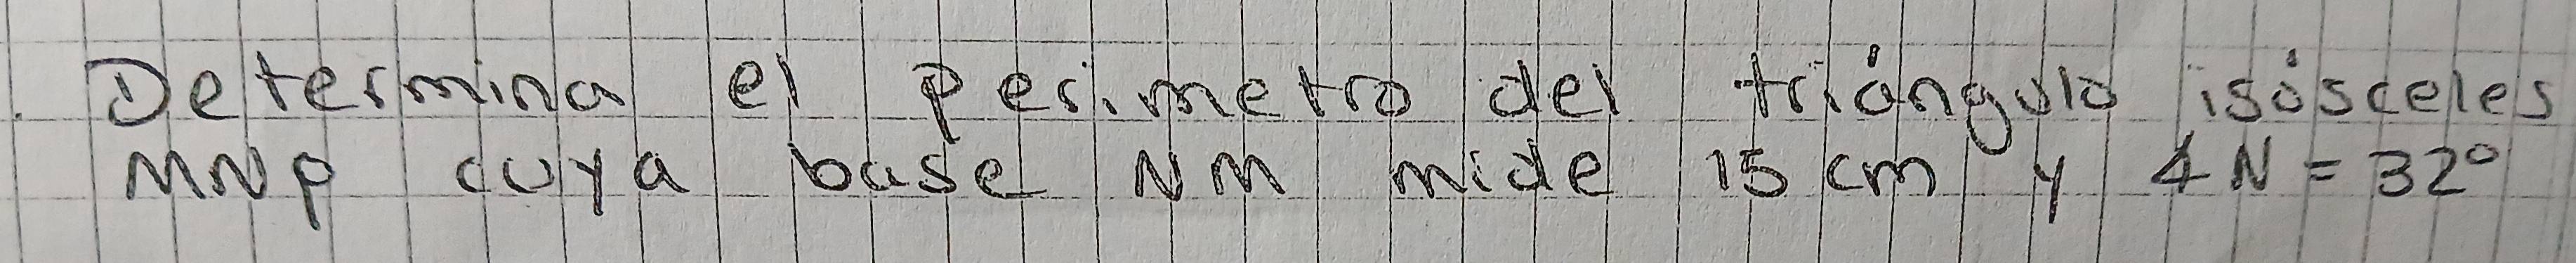 Determina el perimetro del triángulo isósceles
MNP cuya base NM mide 15 cm y ∡N = 32°